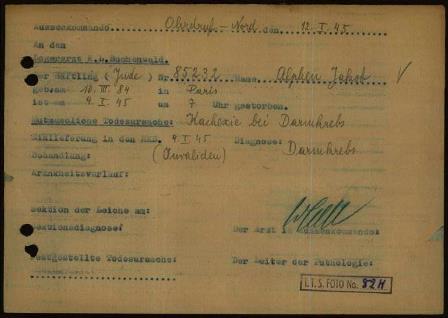 Aussenkommando Ohrdruf - Nord den 12. I. 45
An den
Lagerarzt K.L.Buchenwald.
Der Häftling ( Jude ) Nr 85232 Name Alphen Jakob
geb.am 10. III. 84 in Paris
ist am 9. I. 45 um 7 Uhr gestorben.
Mutmassliche Todesursache: Kachexie bei Darmkrebs
Einlieferung in den HKB. 9. I 45 Diagnose: Darmkrebs
Behandlung: (Invaliden)
Krankheitsverlauf:
Sektion der Leiche am:
Sektionsdiagnose: Der Arzt im Aussenkommando:
Festgestellte Todesursache: Der Leiter der Pathologie:
I.T.S. FOTO No. 82H